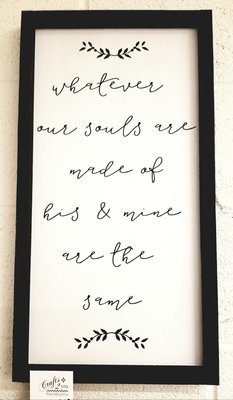 whatever
our souls are
made of
his & mine
are the
same
Crafts
2